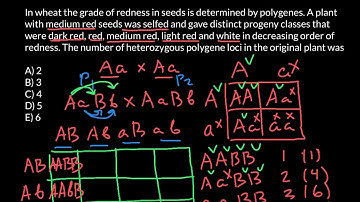 In wheat the grade of redness in seeds is determined by polygenes. A plant
with medium red seeds was selfed and gave distinct progeny classes that
were dark red, red, medium red, light red and white in decreasing order of
redness. The number of heterozygous polygene loci in the original plant was
A) 2
B) 3
C) 4
D) 5
E) 6
Aa x Aa
P1 P2
AaBb x AaBb
AB Ab aB ab
AB AABB
Ab AABb
A a
A AA Aa
a Aa aa
AABB 1 (1)
AaBB 2 (4)
3 (6)